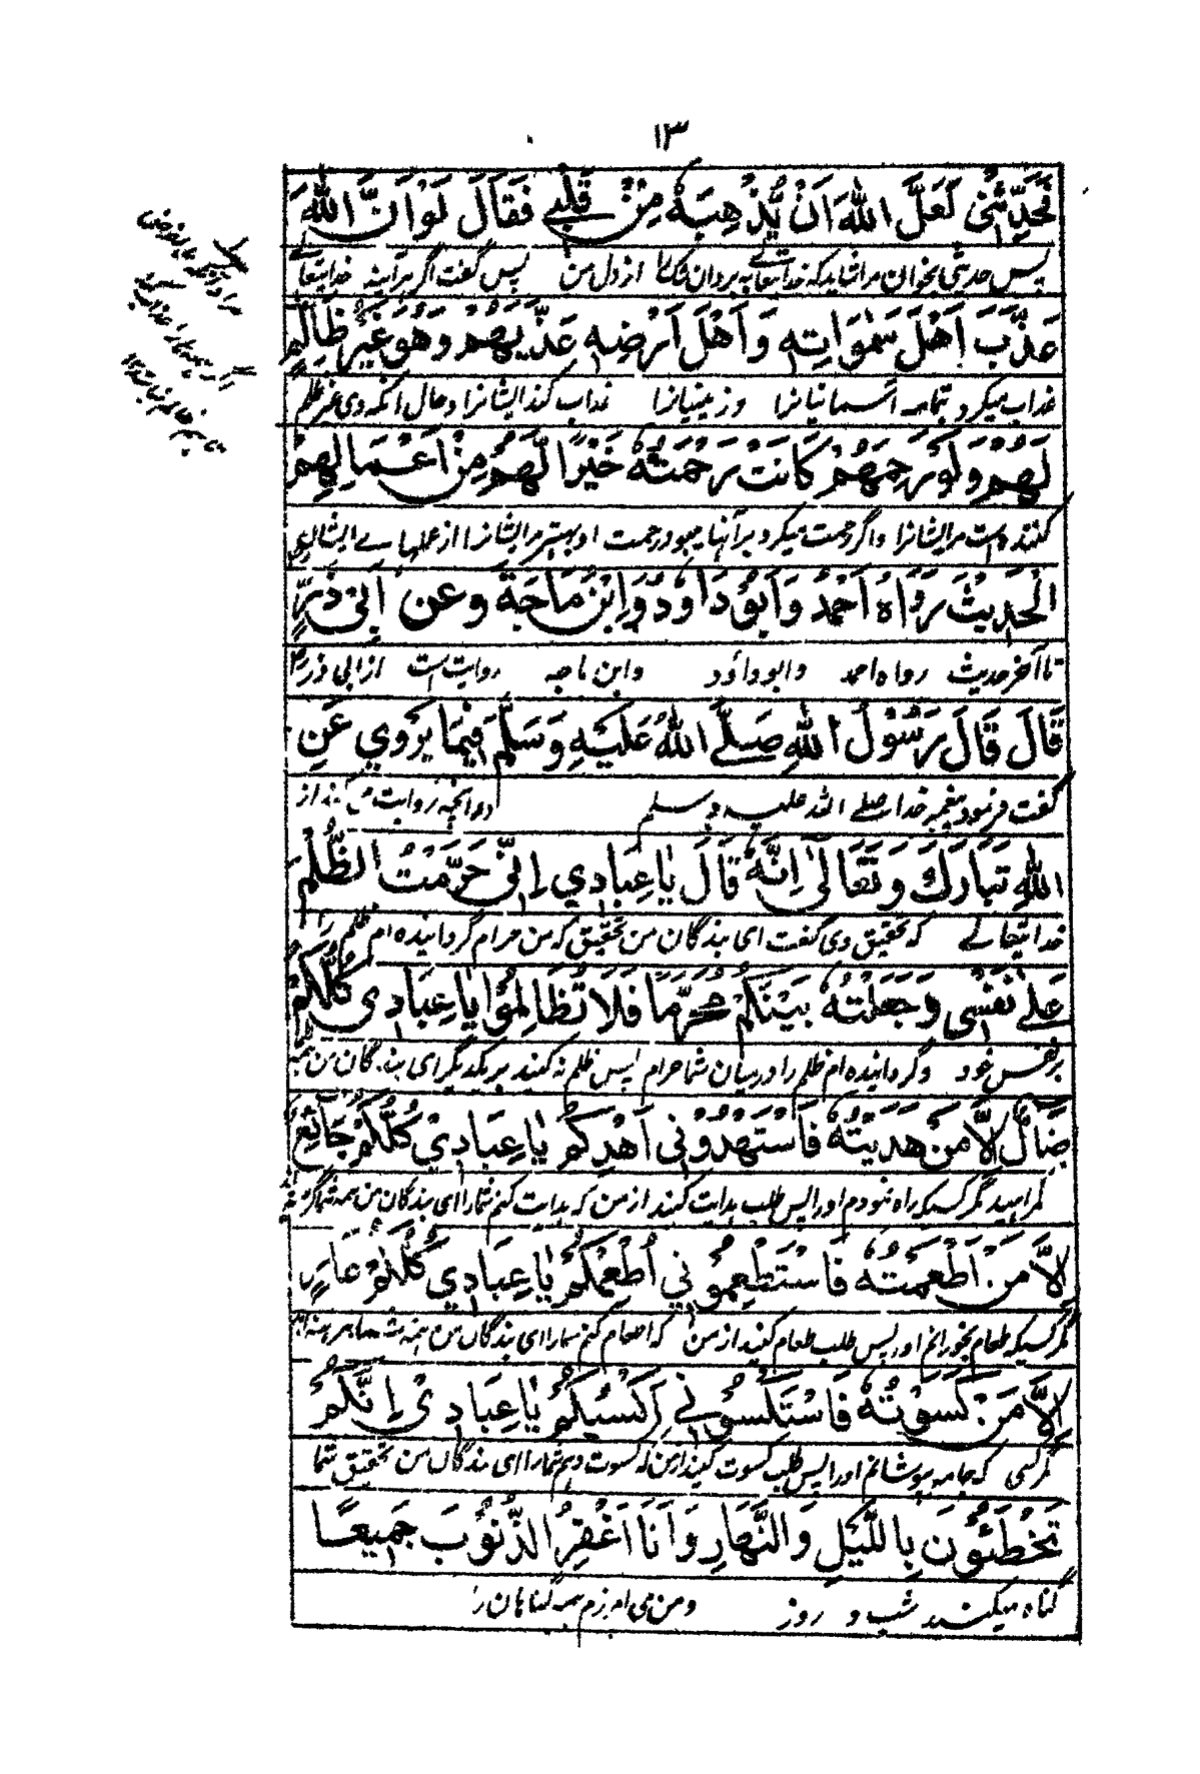 ١٣
فَحَدِّثْنِي لَعَلَّ اللهَ اَنْ يُّذْهِبَهٗ مِنْ قَلْبِي فَقَالَ لَوْ اَنَّ اللهَ
پس حدیثی بخوان مرا شاید که خدایتعالے به برد آن از دل من پس گفت اگر هرآینه خدایتعالے
عَذَّبَ اَهْلَ سَمٰوَاتِهٖ وَاَهْلَ اَرْضِهٖ عَذَّبَهُمْ وَهُوَ غَيْرُ ظَالِمٍ
عذاب میکرد تمامه آسمانیانرا و زمینیانرا عذاب کند ایشانرا و حال آنکه وی غیر ظلم
لَهُمْ وَلَوْ رَحِمَهُمْ كَانَتْ رَحْمَتُهٗ خَيْرًا لَّهُمْ مِنْ اَعْمَالِهِمْ
کننده است مر ایشانرا و اگر رحمت میکرد بر آنها میبود رحمت او بهتر مر ایشانرا از عملهاے ایشان
الْحَدِيْثَ رَوَاهُ اَحْمَدُ وَاَبُوْ دَاوٗدَ وَابْنُ مَاجَةَ وَعَنْ اَبِي ذَرٍّ
تا آخر حدیث رواه احمد و ابو داؤد و ابن ماجه روایت است از ابی ذر
قَالَ قَالَ رَسُوْلُ اللهِ صَلَّے اللهُ عَلَيْهِ وَسَلَّمَ فِيْمَا يَرْوِي عَنِ
گفت فرمود پیغمبر خدا صلے الله علیه وسلم در آنچه روایت از
اللهِ تَبَارَكَ وَتَعَالٰى اِنَّهٗ قَالَ يٰا عِبَادِي اِنِّي حَرَّمْتُ الظُّلْمَ
خدایتعالے که تحقیق وی گفت ای بندگان من تحقیق که من حرام گردانیده ام ظلم را
عَلٰے نَفْسِي وَجَعَلْتُهٗ بَيْنَكُمْ مُحَرَّمًا فَلَا تَظَالَمُوْا يٰا عِبَادِي كُلُّكُمْ
بر نفس خود و گردانیده ام ظلم را درمیان شما حرام پس ظلم نه کنید بر یکدیگر ای بندگان من همه
ضَالٌّ اِلَّا مَنْ هَدَيْتُهٗ فَاسْتَهْدُوْنِي اَهْدِكُمْ يٰا عِبَادِيْ كُلُّكُمْ جَائِعٌ
گمراهید مگر کسیکه راه نمودم او را پس طلب هدایت کنید از من که هدایت کنم شما را ای بندگان من همه شما
اِلَّا مَنْ اَطْعَمْتُهٗ فَاسْتَطْعِمُوْنِي اُطْعِمْكُمْ يٰا عِبَادِي كُلُّكُمْ عَارٍ
مگر کسیکه طعام بخورانم او را پس طلب طعام کنید از من که اطعام کنم شمارا ای بندگان من همه شما برهنه
اِلَّا مَنْ كَسَوْتُهٗ فَاسْتَكْسُوْنِي اَكْسُكُمْ يٰا عِبَادِيْ اِنَّكُمْ
مگر کسی که جامه پوشانم او را پس طلب کسوت کنید از من که کسوت دهم شمارا ای بندگان من تحقیق شما
تُخْطِئُوْنَ بِاللَّيْلِ وَالنَّهَارِ وَاَنَا اَغْفِرُ الذُّنُوْبَ جَمِيْعًا
گناه میکنید شب و روز و من می آمرزم همه گناهان را